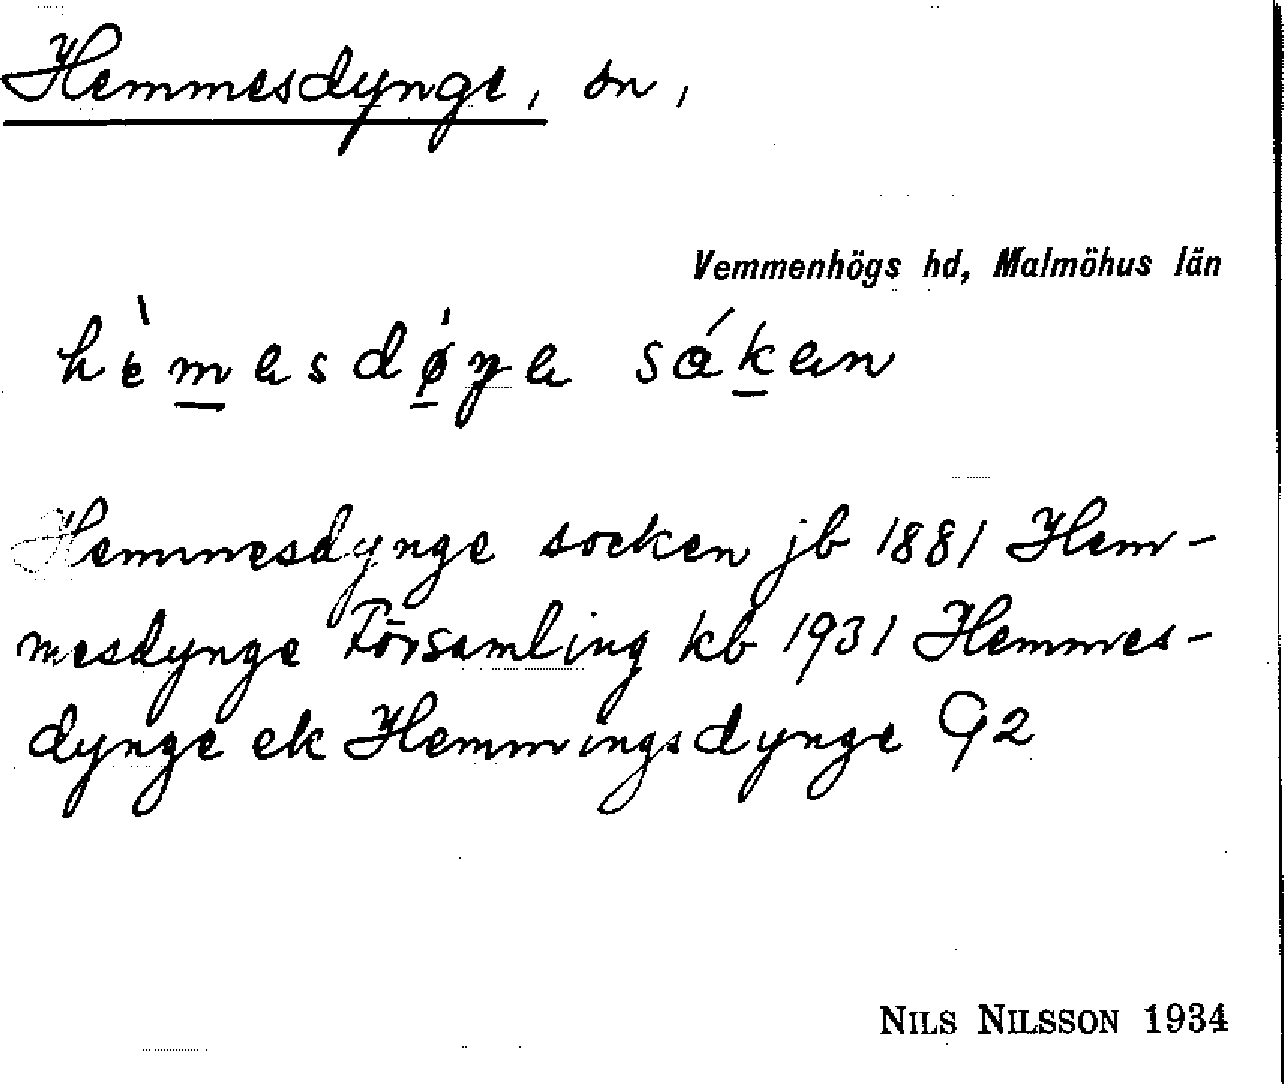 Hemmesdynge, sn,
Vemmenhögs hd, Malmöhus län
hèmesdøŋe såken
Hemmesdynge socken jb 1881 Hem-
mesdynge Församling kb 1931 Hemmes-
dynge ek Hemmingsdynge 92
NILS NILSSON 1934